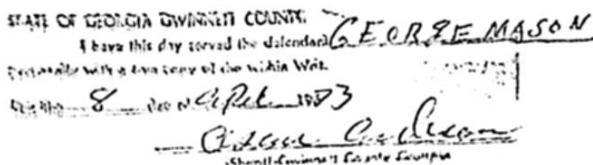 STATE OF GEORGIA GWINNETT COUNTY:
I have this day served the defendant GEORGE MASON
Personally with a true copy of the within Writ.
This the 8 day of Apr 1983
Sheriff Gwinnett County Georgia